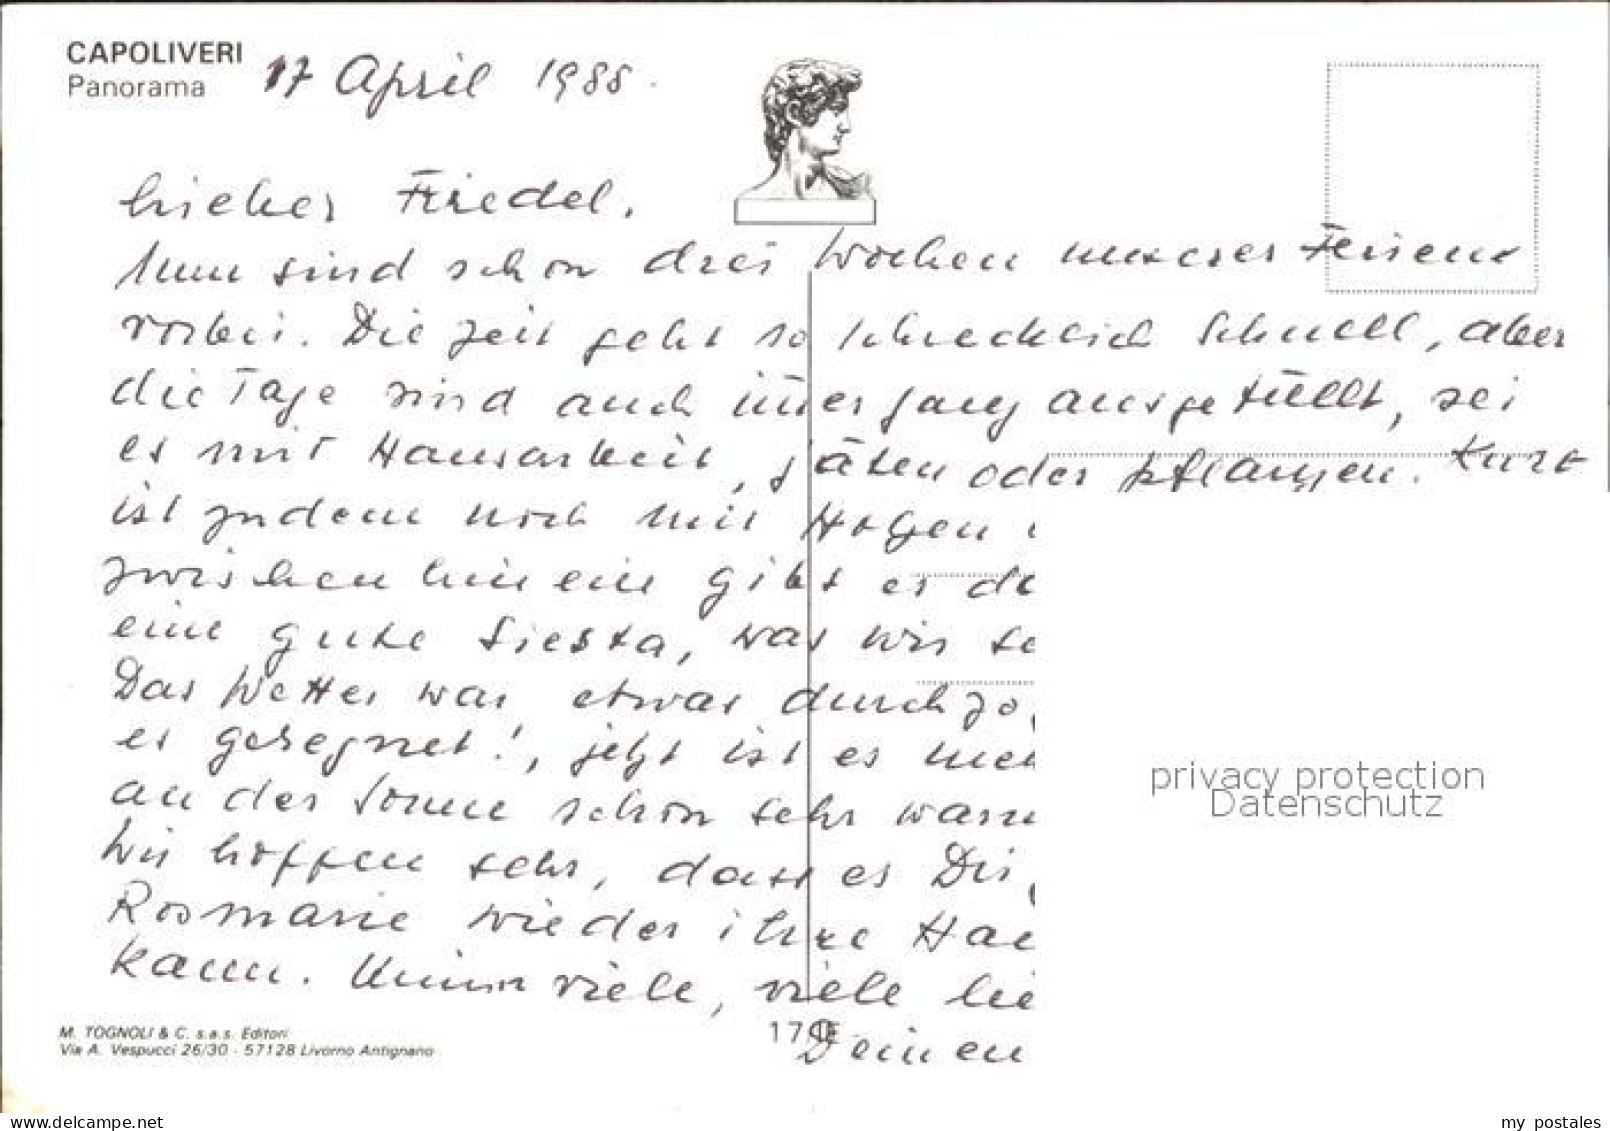 CAPOLIVERI
Panorama
17 April 1988.
Lieber Friedel.
Nun sind schon drei Wochen unserer Ferien
vorbei. Die Zeit geht so schrecklich schnell, aber
die Tage sind auch ausgefüllt, sei
es mit Hausarbeit, jäten oder pflanzen. Kurt
ist zudem noch mit
zwischen hinein gibt es
eine gute Siesta, was wir
Das Wetter war etwas
er geregnet!, jetzt ist es
an der Sonne schon sehr
Wir hoffen sehr, dass es Dir
Rosmarie wieder ihre
kann. Nimm viele, viele
Deinen
M. TOGNOLI & C. s.a.s. Editori
Via A. Vespucci 26/30 - 57128 Livorno Antignano
privacy protection
Datenschutz
www.delcampe.net
my_postales